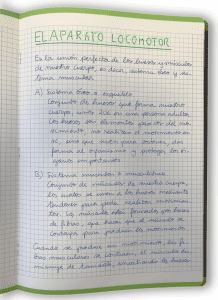 EL APARATO LOCOMOTOR
Es la unión perfecta de los huesos y músculos
de nuestro cuerpo, es decir, sistema óseo y sis-
tema muscular.
A) Sistema óseo o esqueleto
Conjunto de huesos que forma nuestro
cuerpo, sobre 206 en una persona adulta.
Los huesos son elementos pasivos del mo-
vimiento, no realizan el movimiento en
sí, sino que sirven para sostener, dar
forma al organismo y proteger los
B) Sistema muscular o musculatura
Conjunto de músculos de nuestro cuerpo,
los cuales se unen a los huesos mediante
tendones para poder realizar movimien-
tos. Los músculos están formados por haces
de fibras, que hacen que el músculo se
contraiga para producir los movimientos.
Cuando se produce un movimiento, las fi-
bras musculares se contraen, el músculo